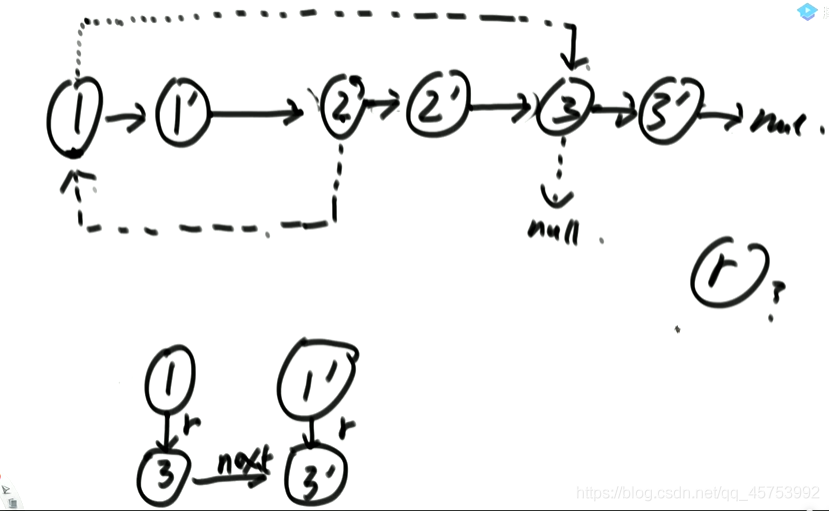 1 1' 2 2' 3 3' null.
null.
r ?
1 1'
r r
3 next 3'
https://blog.csdn.net/qq_45753992